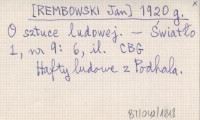 [REMBOWSKI Jan] 1920 g.
O sztuce ludowej. – Światło
1, nr 9: 6, il. CBG
Hafty ludowe z Podhala.